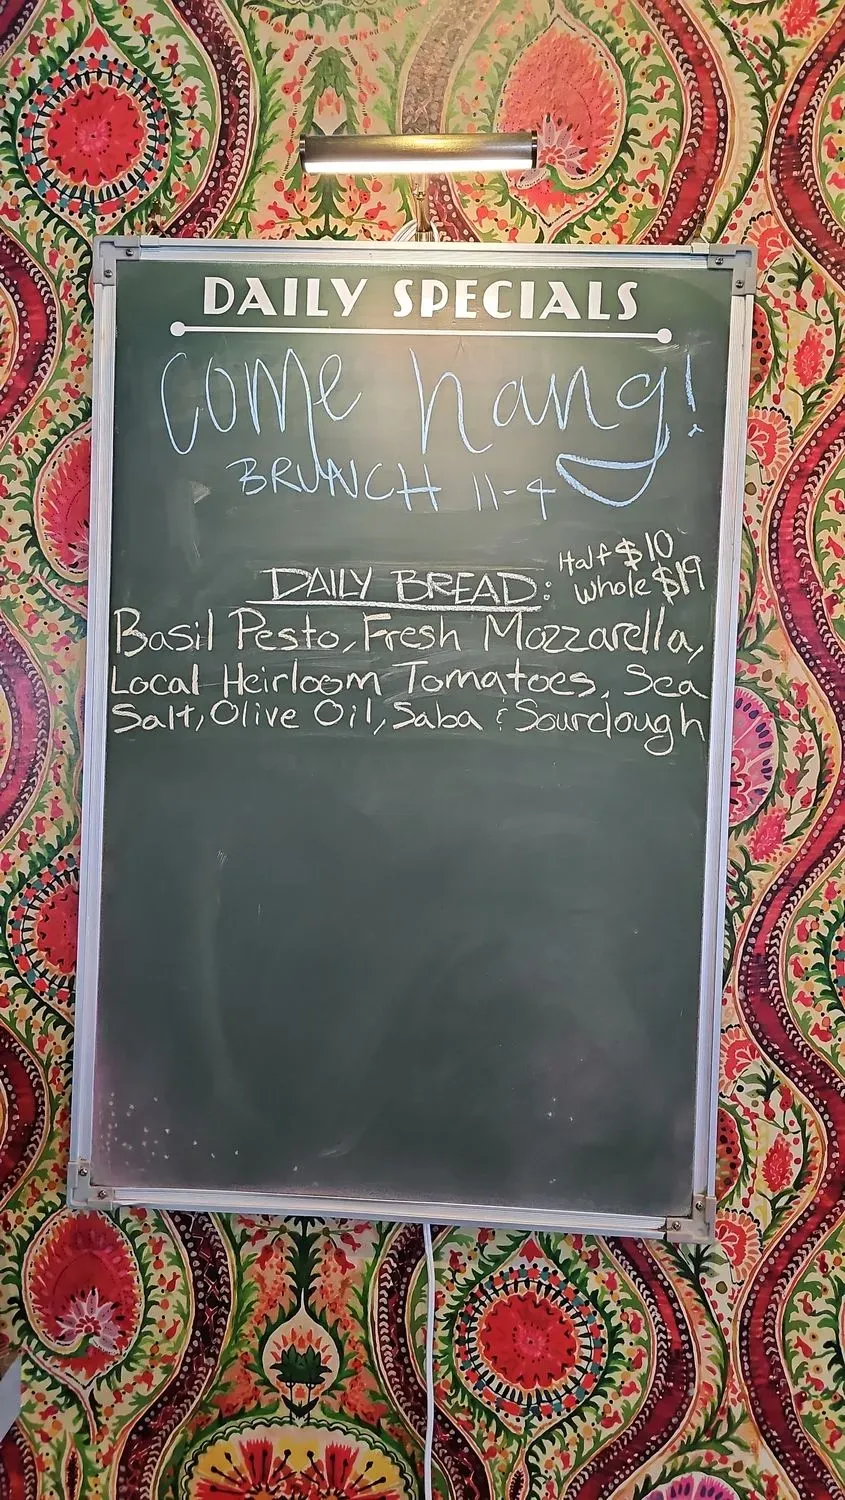 DAILY SPECIALS
Come hang!
BRUNCH 11-4
Half $10
DAILY BREAD: Whole $19
Basil Pesto, Fresh Mozzarella,
Local Heirloom Tomatoes, Sea
Salt, Olive Oil, Saba & Sourdough